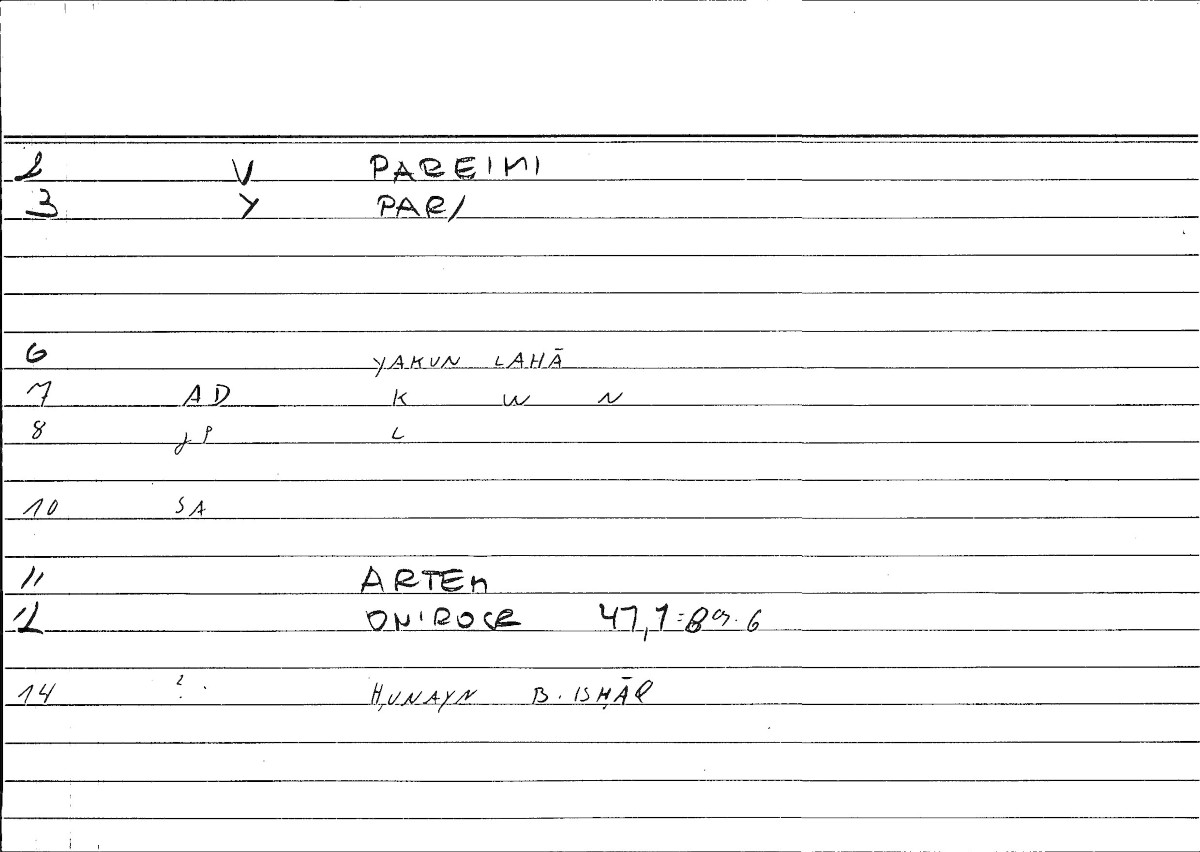 2 V PAREIMI
3 Y PAR/
6 YAKUN LAHĀ
7 AD K W N
8 jP L
10 SA
11 ARTEM
12 ONIROCR 47,1=
14 ? . ḤUNAYN B. ISḤĀQ